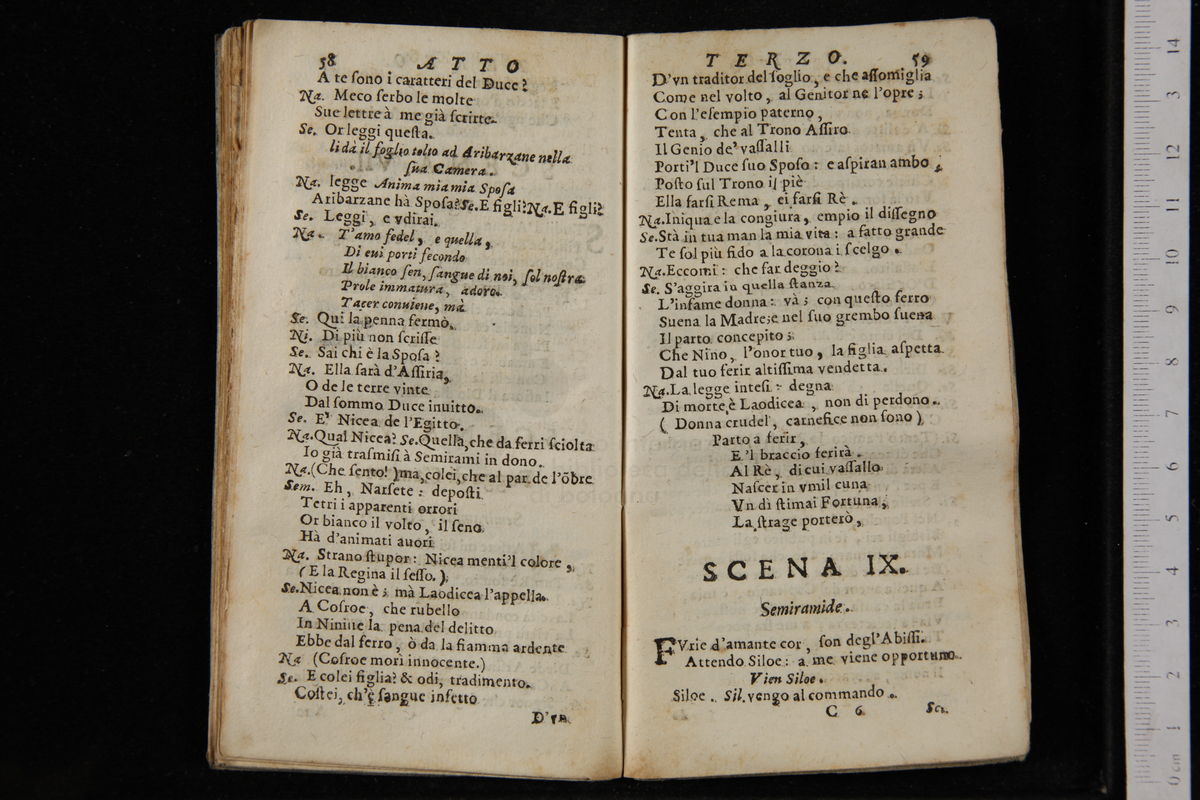 58 ATTO
A te ſono i caratteri del Duce?
Na. Meco ſerbo le molte
Sue lettre à me già ſcritte.
Se. Or leggi queſta.
li dà il foglio tolto ad Aribarzane nella
ſua Camera.
Na. legge Anima mia mia Spoſa
Aribarzane hà Spoſa? Se. E figli? Na. E figli?
Se. Leggi, e vdirai.
Na. T'amo fedel, e quella,
Di cui porti fecondo
Il bianco ſen, ſangue di noi, ſol noſtra
Prole immatura, adoro.
Tacer conuiene, mà
Se. Qui la penna fermò.
Ni. Di più non ſcriſſe
Se. Sai chi è la Spoſa?
Na. Ella ſarà d'Aſſiria,
O de le terre vinte
Dal ſommo Duce inuitto.
Se. E' Nicea de l'Egitto.
Na. Qual Nicea? Se. Quella, che da ferri ſciolta
Io già traſmiſi à Semirami in dono.
Na. (Che ſento!) ma, colei, che al par de l'õbre
Sem. Eh, Narſete: depoſti
Tetri i apparenti orrori
Or bianco il volto, il ſeno
Hà d'animati auori
Na. Strano ſtupor: Nicea mentì'l colore,
(E la Regina il ſeſſo.)
Se. Nicea non è; mà Laodicea l'appella.
A Coſroe, che rubello
In Niniue la pena del delitto
Ebbe dal ferro, ò da la fiamma ardente
Na (Coſroe morì innocente.)
Se. E colei figlia? & odi, tradimento.
Coſtei, ch'è ſangue infetto
D'vn
TERZO. 59
D'vn traditor del ſoglio, e che aſſomiglia
Come nel volto, al Genitor ne l'opre;
Con l'eſempio paterno,
Tenta, che al Trono Aſſiro
Il Genio de' vaſſalli
Porti'l Duce ſuo Spoſo: e aſpiran ambo;
Poſto ſul Trono il piè
Ella farſi Rema, ei farſi Rè.
Na. Iniqua e la congiura, empio il diſſegno
Se. Stà in tua man la mia vita: a fatto grande
Te ſol più fido a la corona i ſcelgo.
Na. Eccomi: che far deggio?
Se. S'aggira in quella ſtanza
L'infame donna: và; con queſto ferro
Suena la Madre; e nel ſuo grembo ſuena
Il parto concepito;
Che Nino, l'onor tuo, la figlia aſpetta
Dal tuo ferir altiſſima vendetta.
Na. La legge inteſi: degna
Di morte è Laodicea, non di perdono.
(Donna crudel, carnefice non ſono)
Parto a ferir,
E 'l braccio ferirà.
Al Rè, di cui vaſſallo
Naſcer in vmil cuna
Vn dì ſtimai Fortuna,
La ſtrage porterò,
SCENA IX.
Semiramide.
FVrie d'amante cor, ſon degl'Abiſſi.
Attendo Siloe: a me viene opportuno.
Vien Siloe.
Siloe. Sil. vengo al commando.
C 6 Sc.